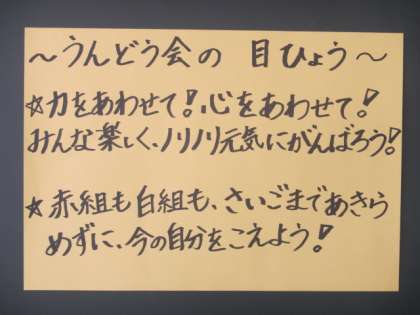 ～うんどう会の 目ひょう～
☆力をあわせて！心をあわせて！
みんな楽しく、ノリノリ元気にがんばろう！
☆赤組も白組も、さいごまであきら
めずに、今の自分をこえよう！